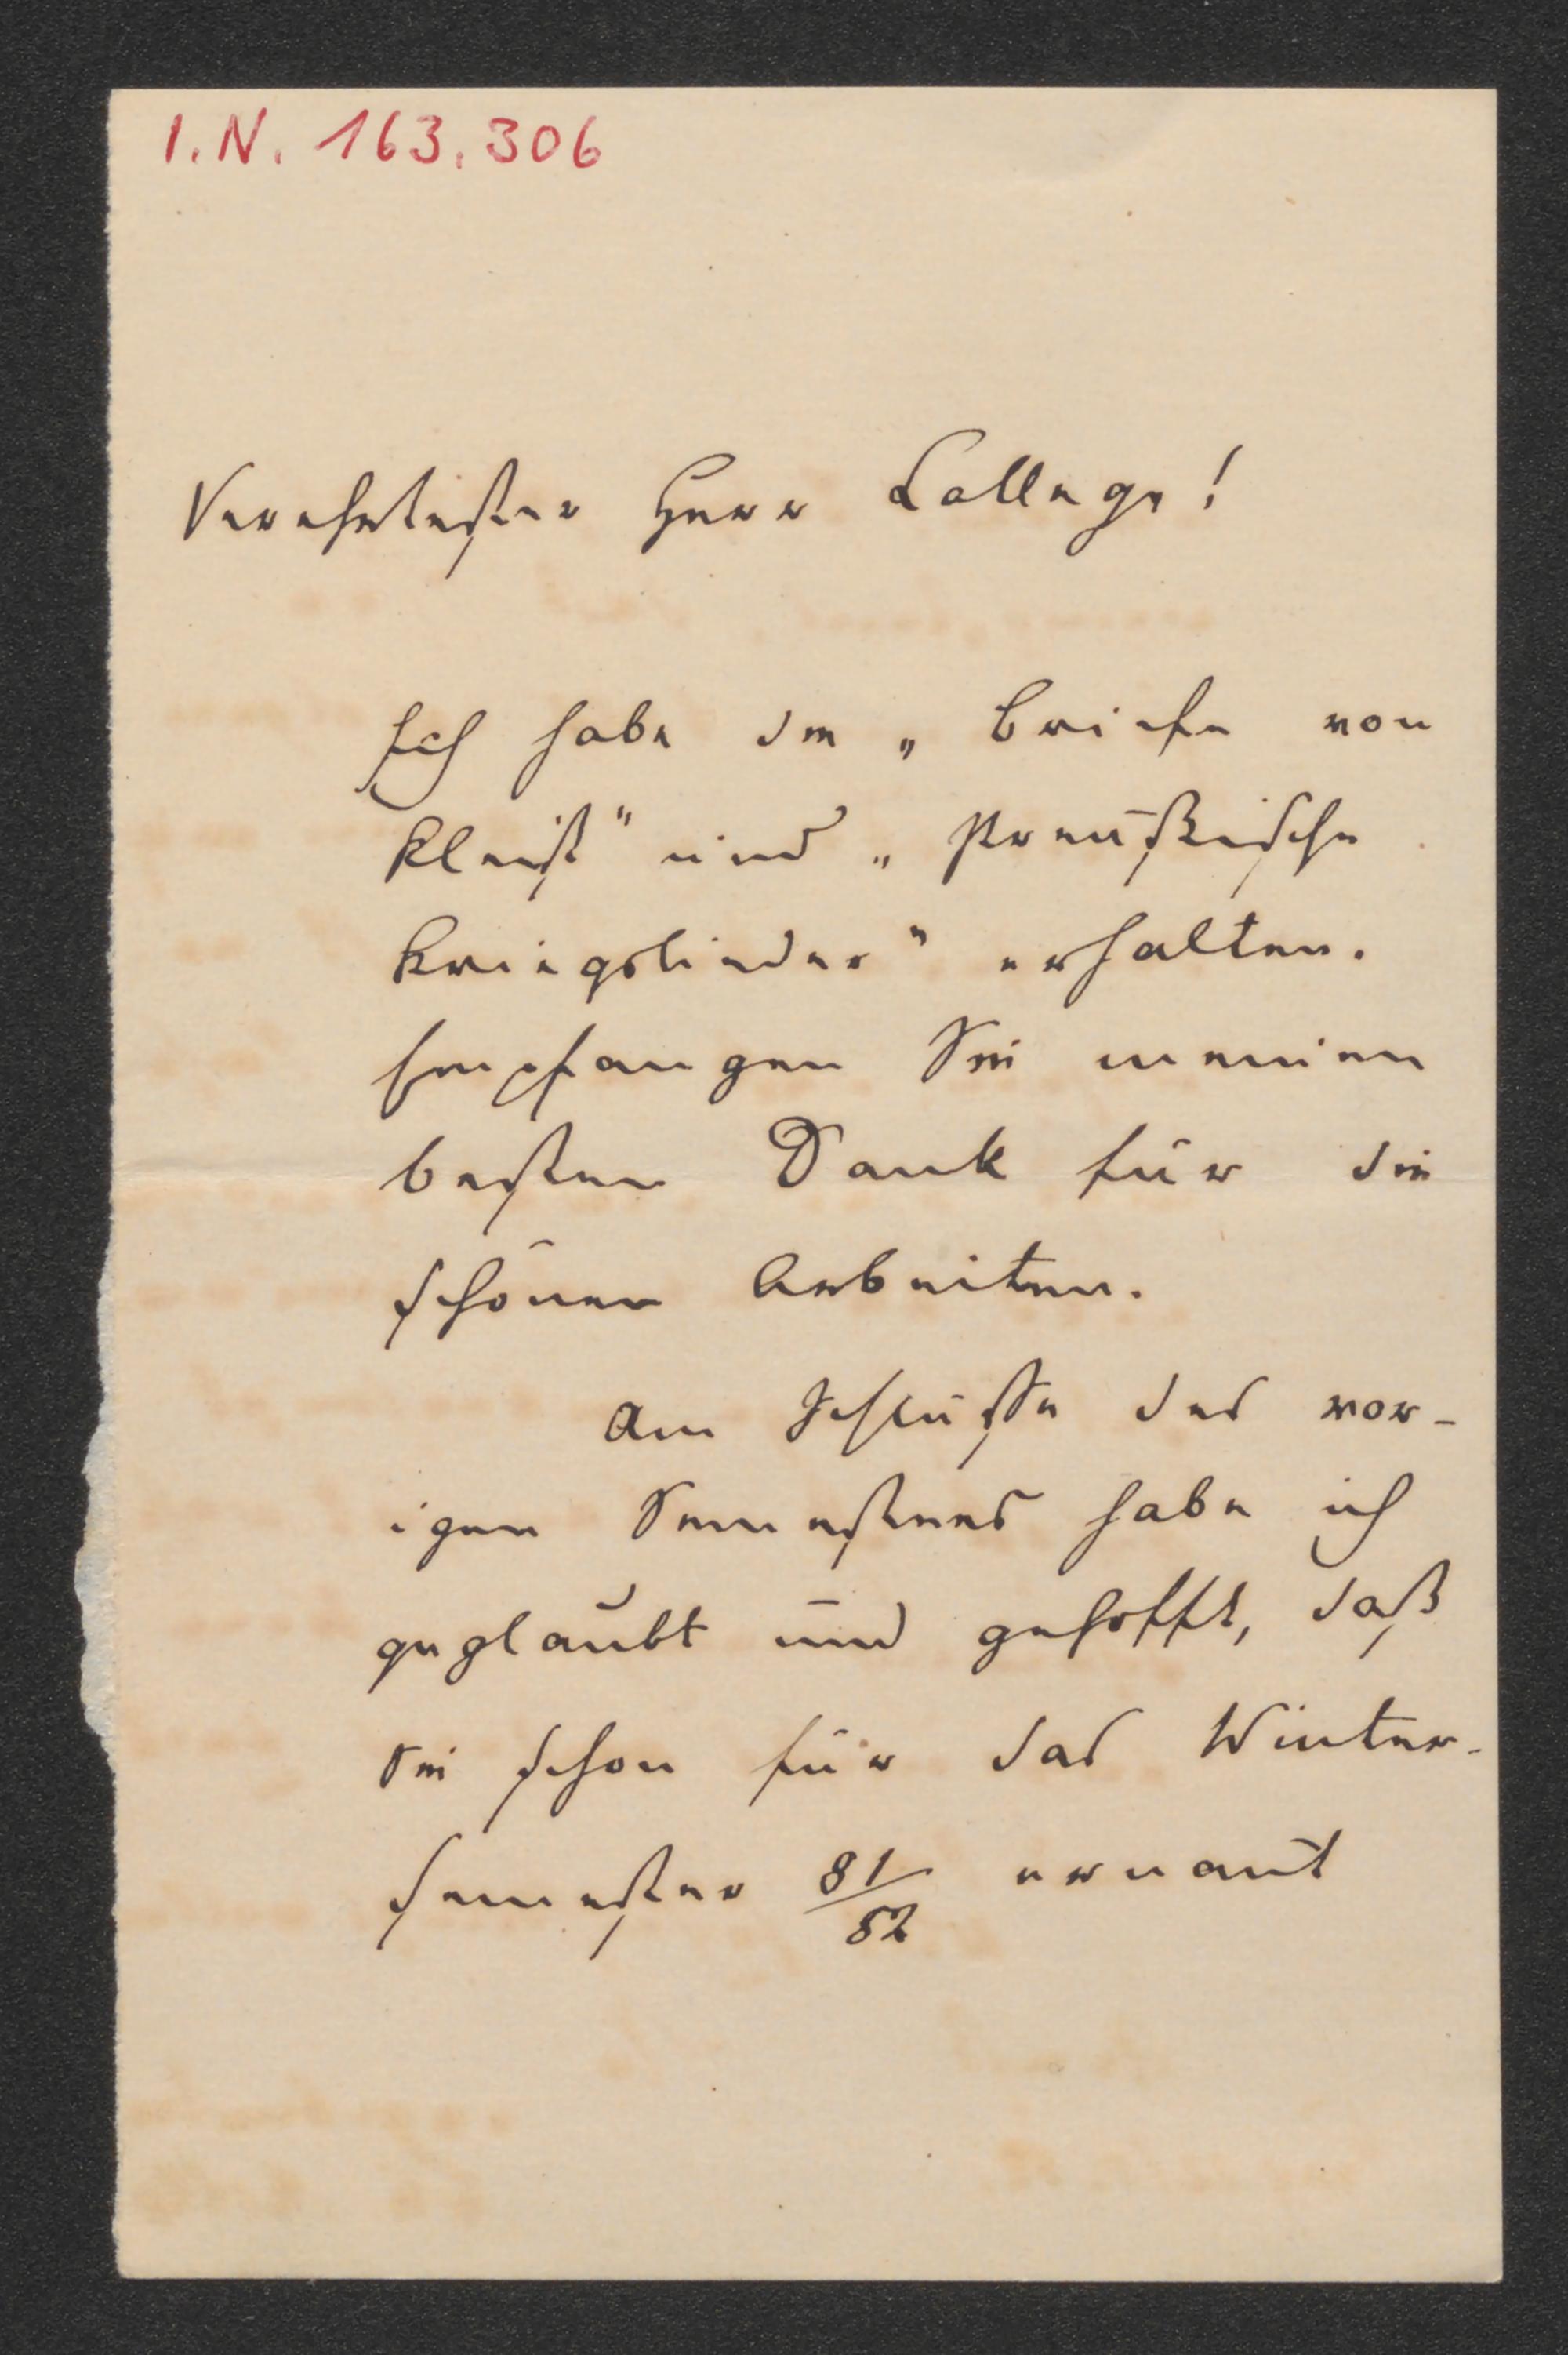 I.N. 163.306
Verehrtester Herr College!
Ich habe die „Briefe von
Kleist" und „Preußische
Kriegslieder" erhalten.
Empfangen Sie meinen
besten Dank für die
schönen Arbeiten.
Am Schluße des vor-
igen Semesters habe ich
geglaubt und gehofft, daß
Sie schon für das Winter-
semester 81/82 ernant